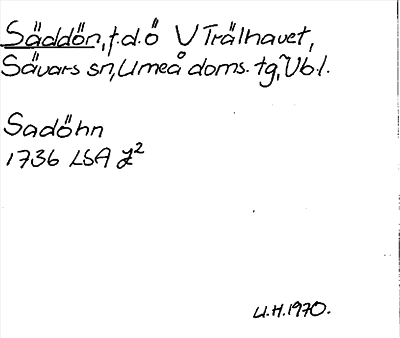 Säddön, f.d. ö V Trälhavet,
Sävars sn, Umeå doms. tg, Vbl.
Sadöhn
1736 LSA Z²
U.H. 1970.